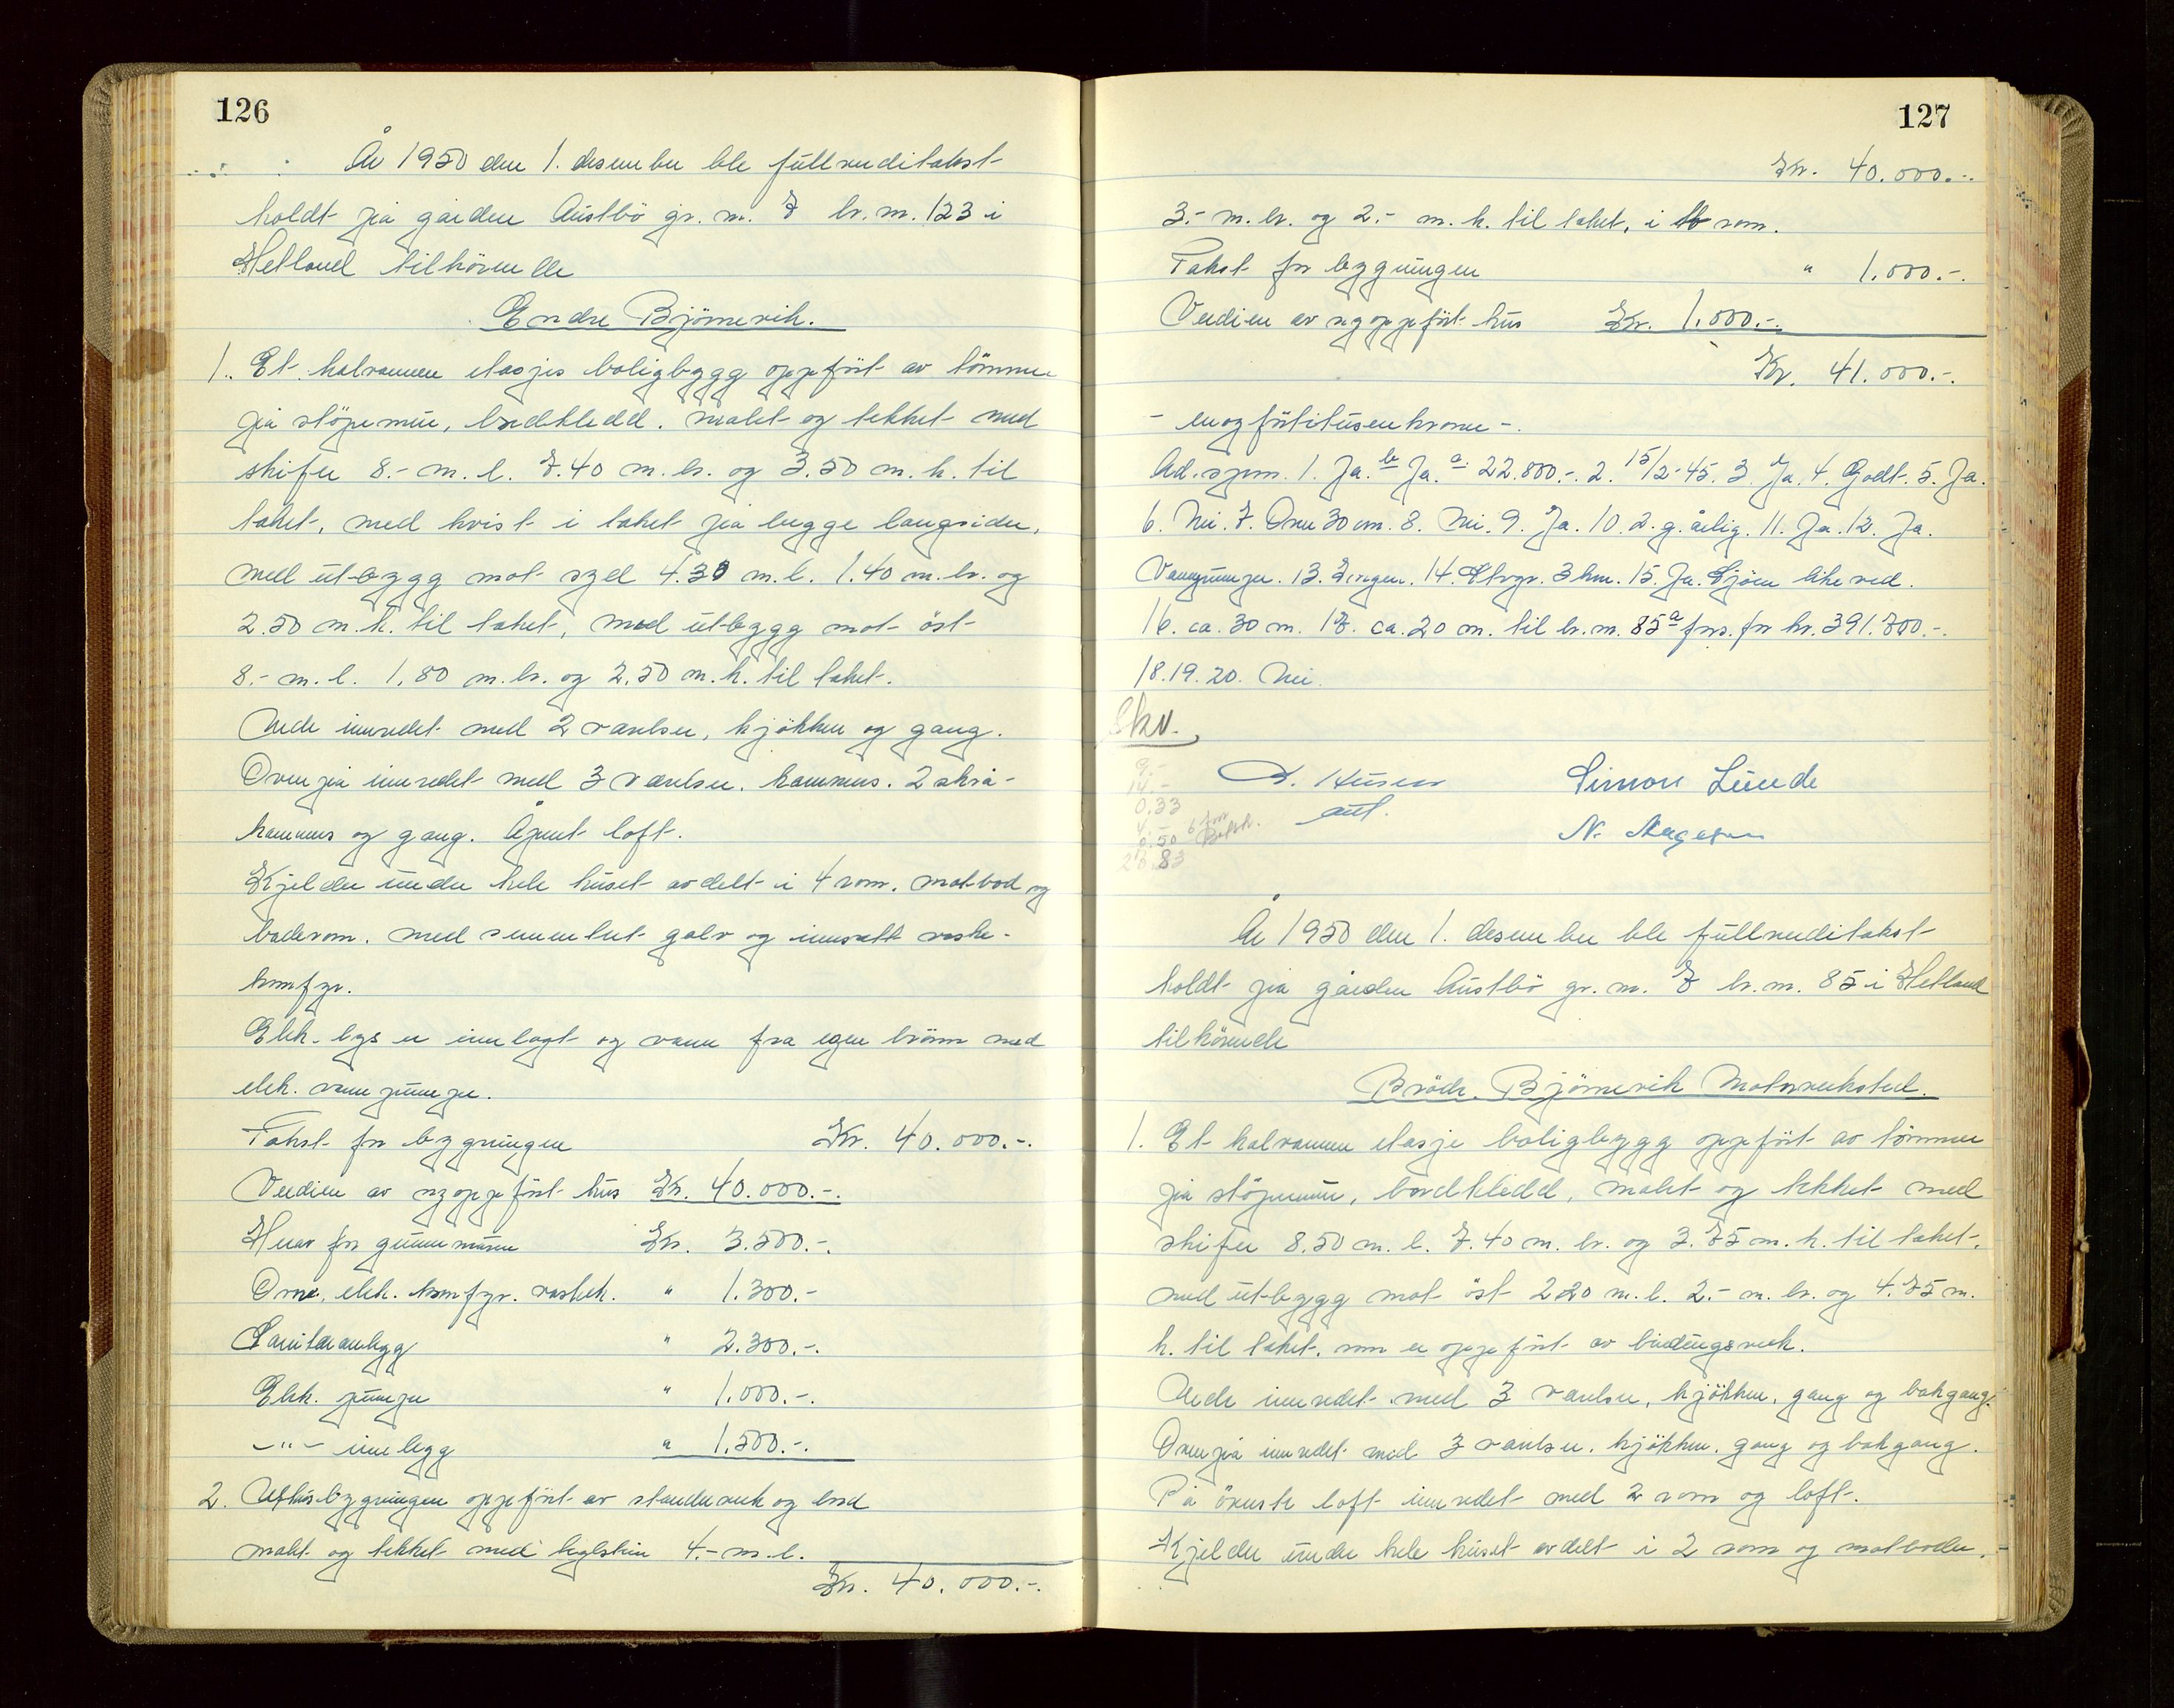 126
År 1950 den 1. desember ble fullverditakst
holdt på gården Austbö gr. nr. 7 br. nr. 123 i
Hetland tilhörende
Endre Björnevik.
1. Et halvannen etasjes boligbygg oppfört av tömmer
på stöpemur, bordkledd, malet og tekket med
skifer 8.- m. l. 7.40 m. br. og 3.50 m. h. til
taket, med kvist i taket på begge langsider,
med utbygg mot syd 4.30 m. l. 1.40 m. br. og
2.50 m. h. til taket, med utbygg mot öst
8.- m. l. 1.80 m. br. og 2.50 m. h. til taket.
Nede innredet med 2 værelser, kjökken og gang.
Ovenpå innredet med 3 værelser, kammers, 2 skrå-
kammers og gang. Åpent loft.
Kjelder under hele huset avdelt i 4 rom, matbod og
baderom, med sementert golv og innsatt vaske-
komfyr.
Elek. lys er innlagt og vann fra egen brönn med
elek. vannpumpe.
Takst for bygningen Kr. 40.000.-.
Verdien av nyoppfört hus Kr. 40.000.-.
Herav for grunnmuren Kr. 3.500.-.
Ovne, elek. komfyr. vaskek. " 1.300.-
Sanitæranlegg " 2.300.-.
Elek. pumpe " 1.000.-.
-"- innlegg " 1.500.-.
2. Uthusbygningen oppfört av stenderverk og bord
malt og tekket med teglstein 4.- m. l.
Kr. 40.000.-.
127
Kr. 40.000.-.
3.- m. br. og 2.- m. h. til taket, i rom.
Takst for bygningen " 1.000.-.
Verdien av nyoppfört hus Kr. 1.000.-.
Kr. 41.000.-.
- enogförtitusenkroner -.
Ad. spm. 1. Ja. b Ja. a. 22.800.-. 2. 15/2-45. 3. Ja. 4. Godt. 5. Ja.
6. Nei. 7. Over 30 cm. 8. Nei. 9. Ja. 10. 2. g. årlig. 11. Ja. 12. Ja.
Vannpumpe. 13. Ingen. 14. Stvgr. 3 km. 15. Ja. Sjöen like ved.
16. ca. 30 m. 17. ca. 20 m. til br. nr. 85a fors. for kr. 391.700.-.
18. 19. 20. Nei.
Skv.
9.-
14.-
0.33
0.50
Simon Lunde
År 1950 den 1. desember ble fullverditakst
holdt på gården Austbö gr. nr. 7 br. nr. 85 i Hetland
tilhörende
Brödr. Björnevik Motorverksted.
1. Et halvannen etasje boligbygg oppfört av tömmer
på stöpemur, bordkledd, malt og tekket med
skifer 8.50 m. l. 7.40 m. br. og 3.75 m. h. til taket,
med utbygg mot öst 2.20 m. l. 2.- m. br. og 4.75 m.
h. til taket, som er oppfört av bindingsverk.
Nede innredet med 3 værelser, kjökken, gang og bakgang.
Ovenpå innredet med 3 værelser, kjökken, gang og bakgang.
På överste loft innredet med 2 rom og loft.
Kjelder under hele huset avdelt i 2 rom og matboder.